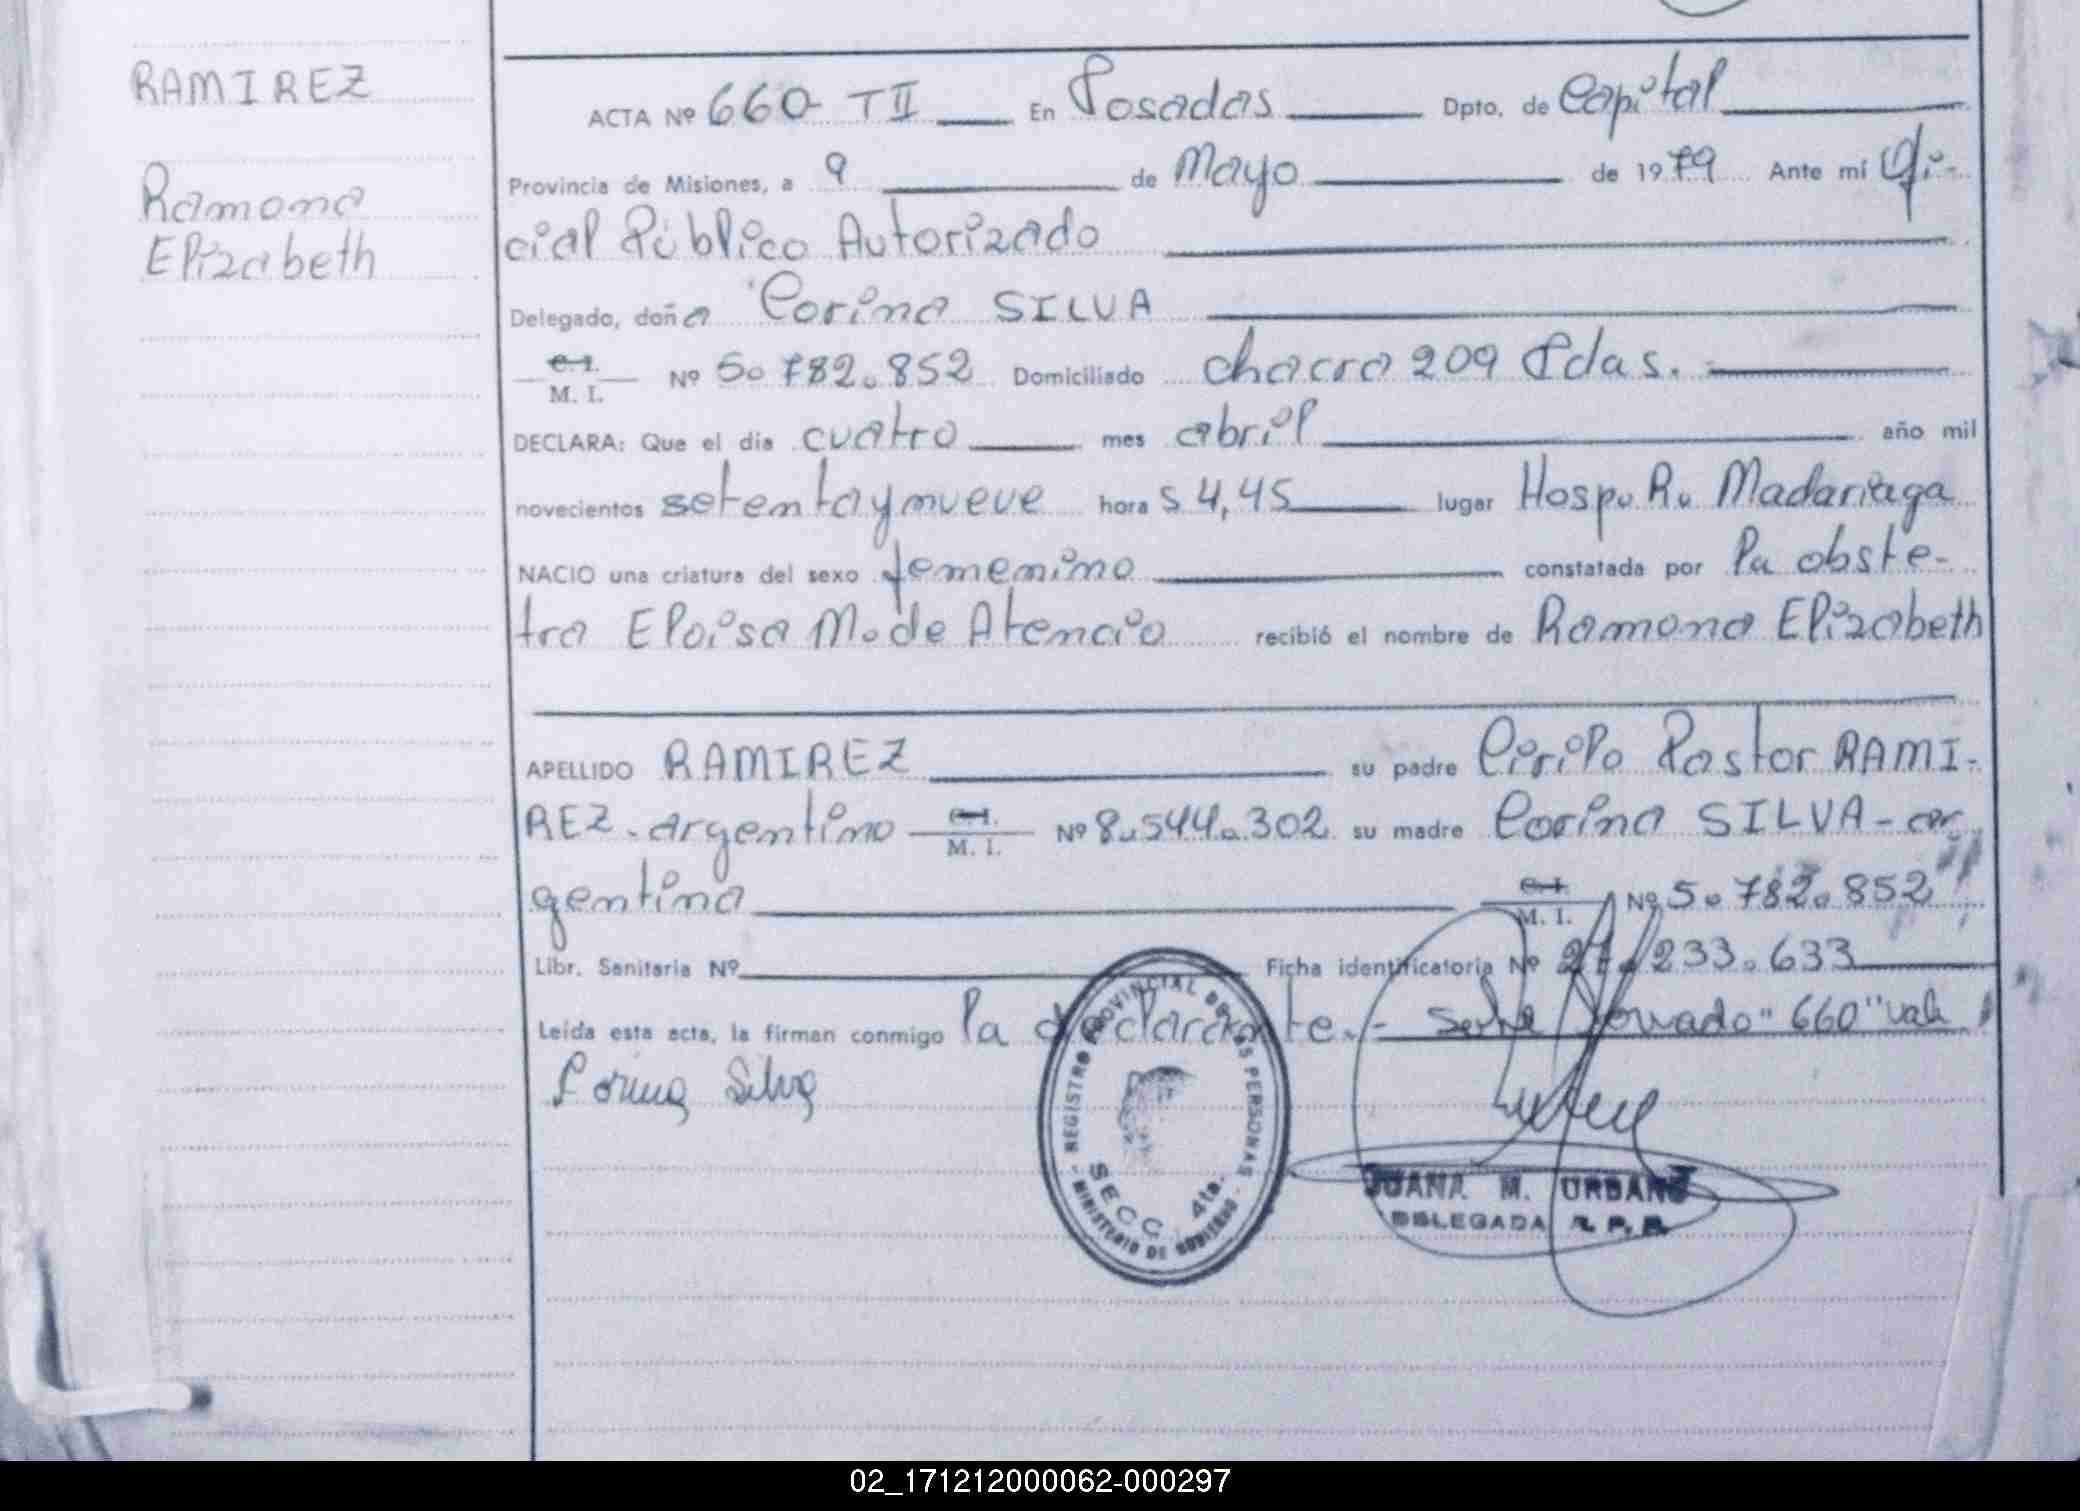 RAMIREZ
Ramona
Elizabeth
ACTA Nº 660 TII En Posadas Dpto. de Capital
Provincia de Misiones, a 9 de Mayo de 1979 Ante mí Ofi-
cial Público Autorizado
Delegado, doña Corina SILVA
C.I. M. I. Nº 5.782.852 Domiciliado chacra 209 Pdas.
DECLARA: Que el día cuatro mes abril año mil
novecientos setenta y nueve hora s 4,45 lugar Hosp. R. Madariaga
NACIO una criatura del sexo femenino constatada por la obste-
tra Eloisa M. de Atencio recibió el nombre de Ramona Elizabeth
APELLIDO RAMIREZ su padre Cirilo Pastor RAMI-
REZ - argentino C.I. M. I. Nº 8.544.302 su madre Corina SILVA - ar
gentina C.I. M. I. Nº 5.782.852
Libr. Sanitaria Nº Ficha identificatoria Nº 27.233.633
Leída esta acta, la firman conmigo la declarante.- Sobre borrado "660" vale
Corina Silva
REGISTRO PROVINCIAL DE LAS PERSONAS
SECC. 4ta.
- MINISTERIO DE GOBIERNO -
JUANA M. URBANO
DELEGADA R. P. P.
02_171212000062-000297